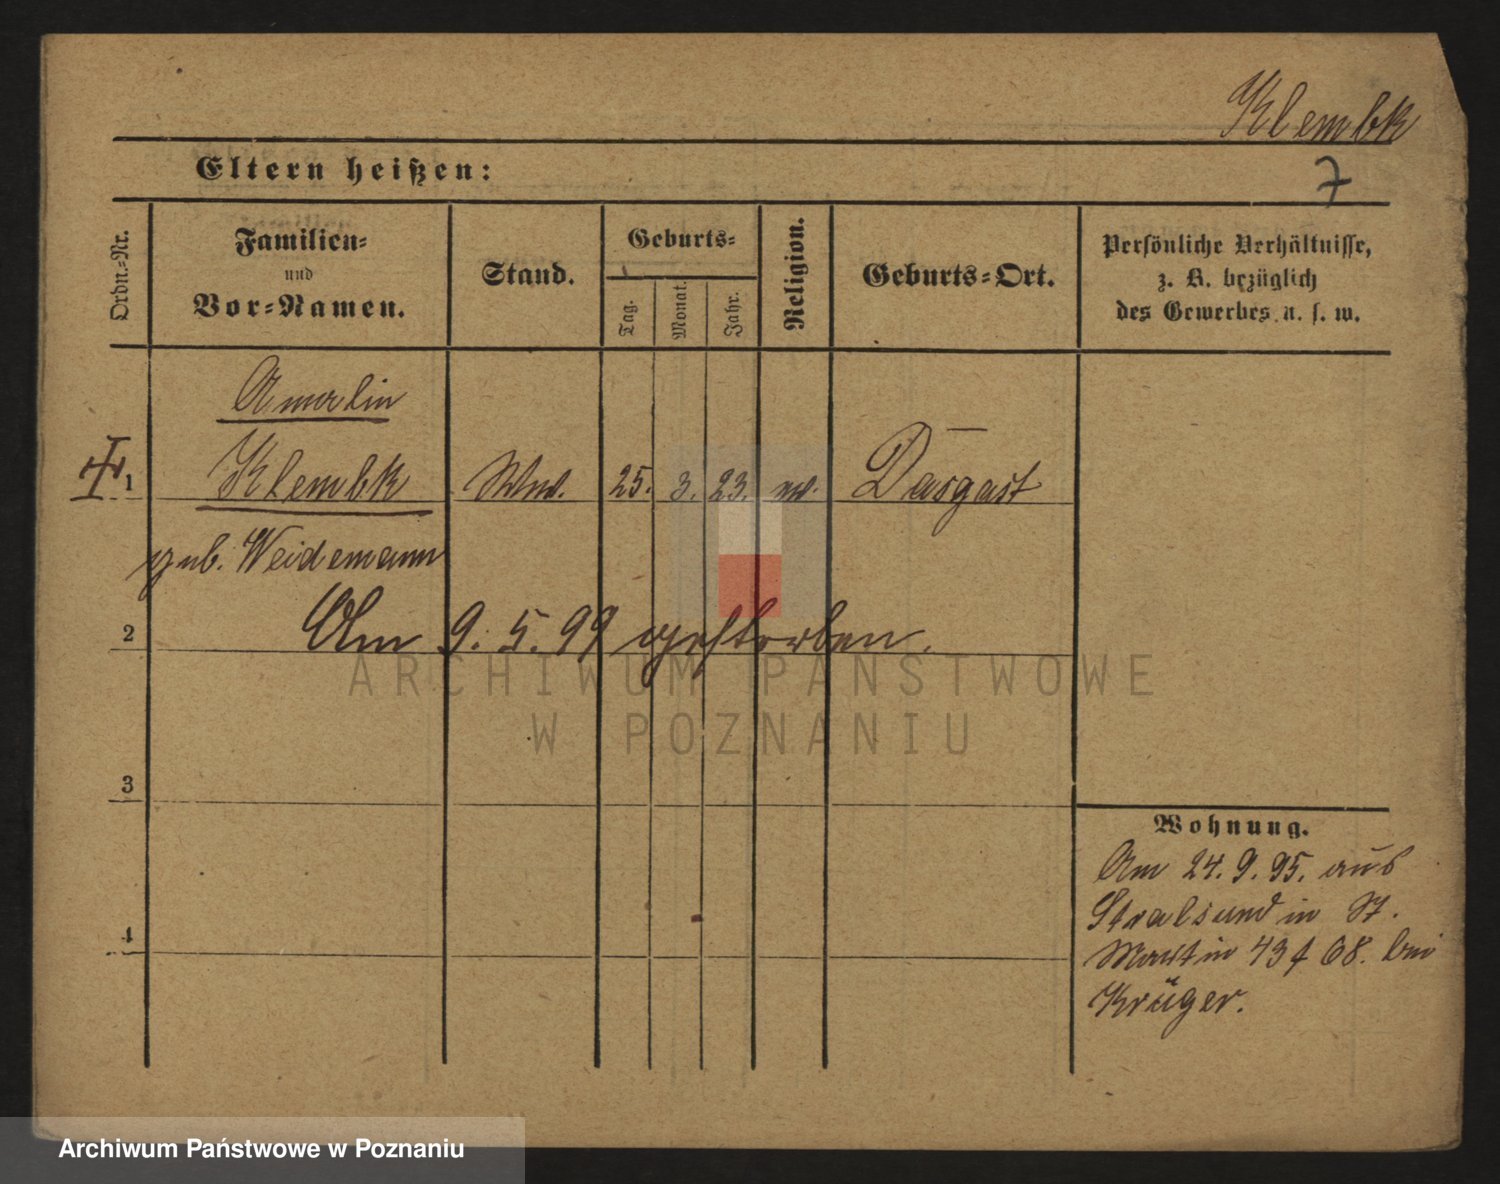 Klembk
Eltern heißen:
7
Ordn.-Nr.
Familien-
und
Vor-Namen.
Stand.
Geburts-
Tag.
Monat.
Jahr.
Religion.
Geburts-Ort.
Persönliche Verhältnisse,
z. B. bezüglich
des Gewerbes u. s. w.
Amalin
1 Klembk Ww. 25. 3. 23. ev. Dargast
geb. Weidemann
2 Am 9. 5. 99 gestorben.
3
4
Wohnung.
Am 24. 9. 95. aus
Stralsund in St.
Martin 43 68. bei
Krüger.
ARCHIWUM PAŃSTWOWE
W POZNANIU
Archiwum Państwowe w Poznaniu